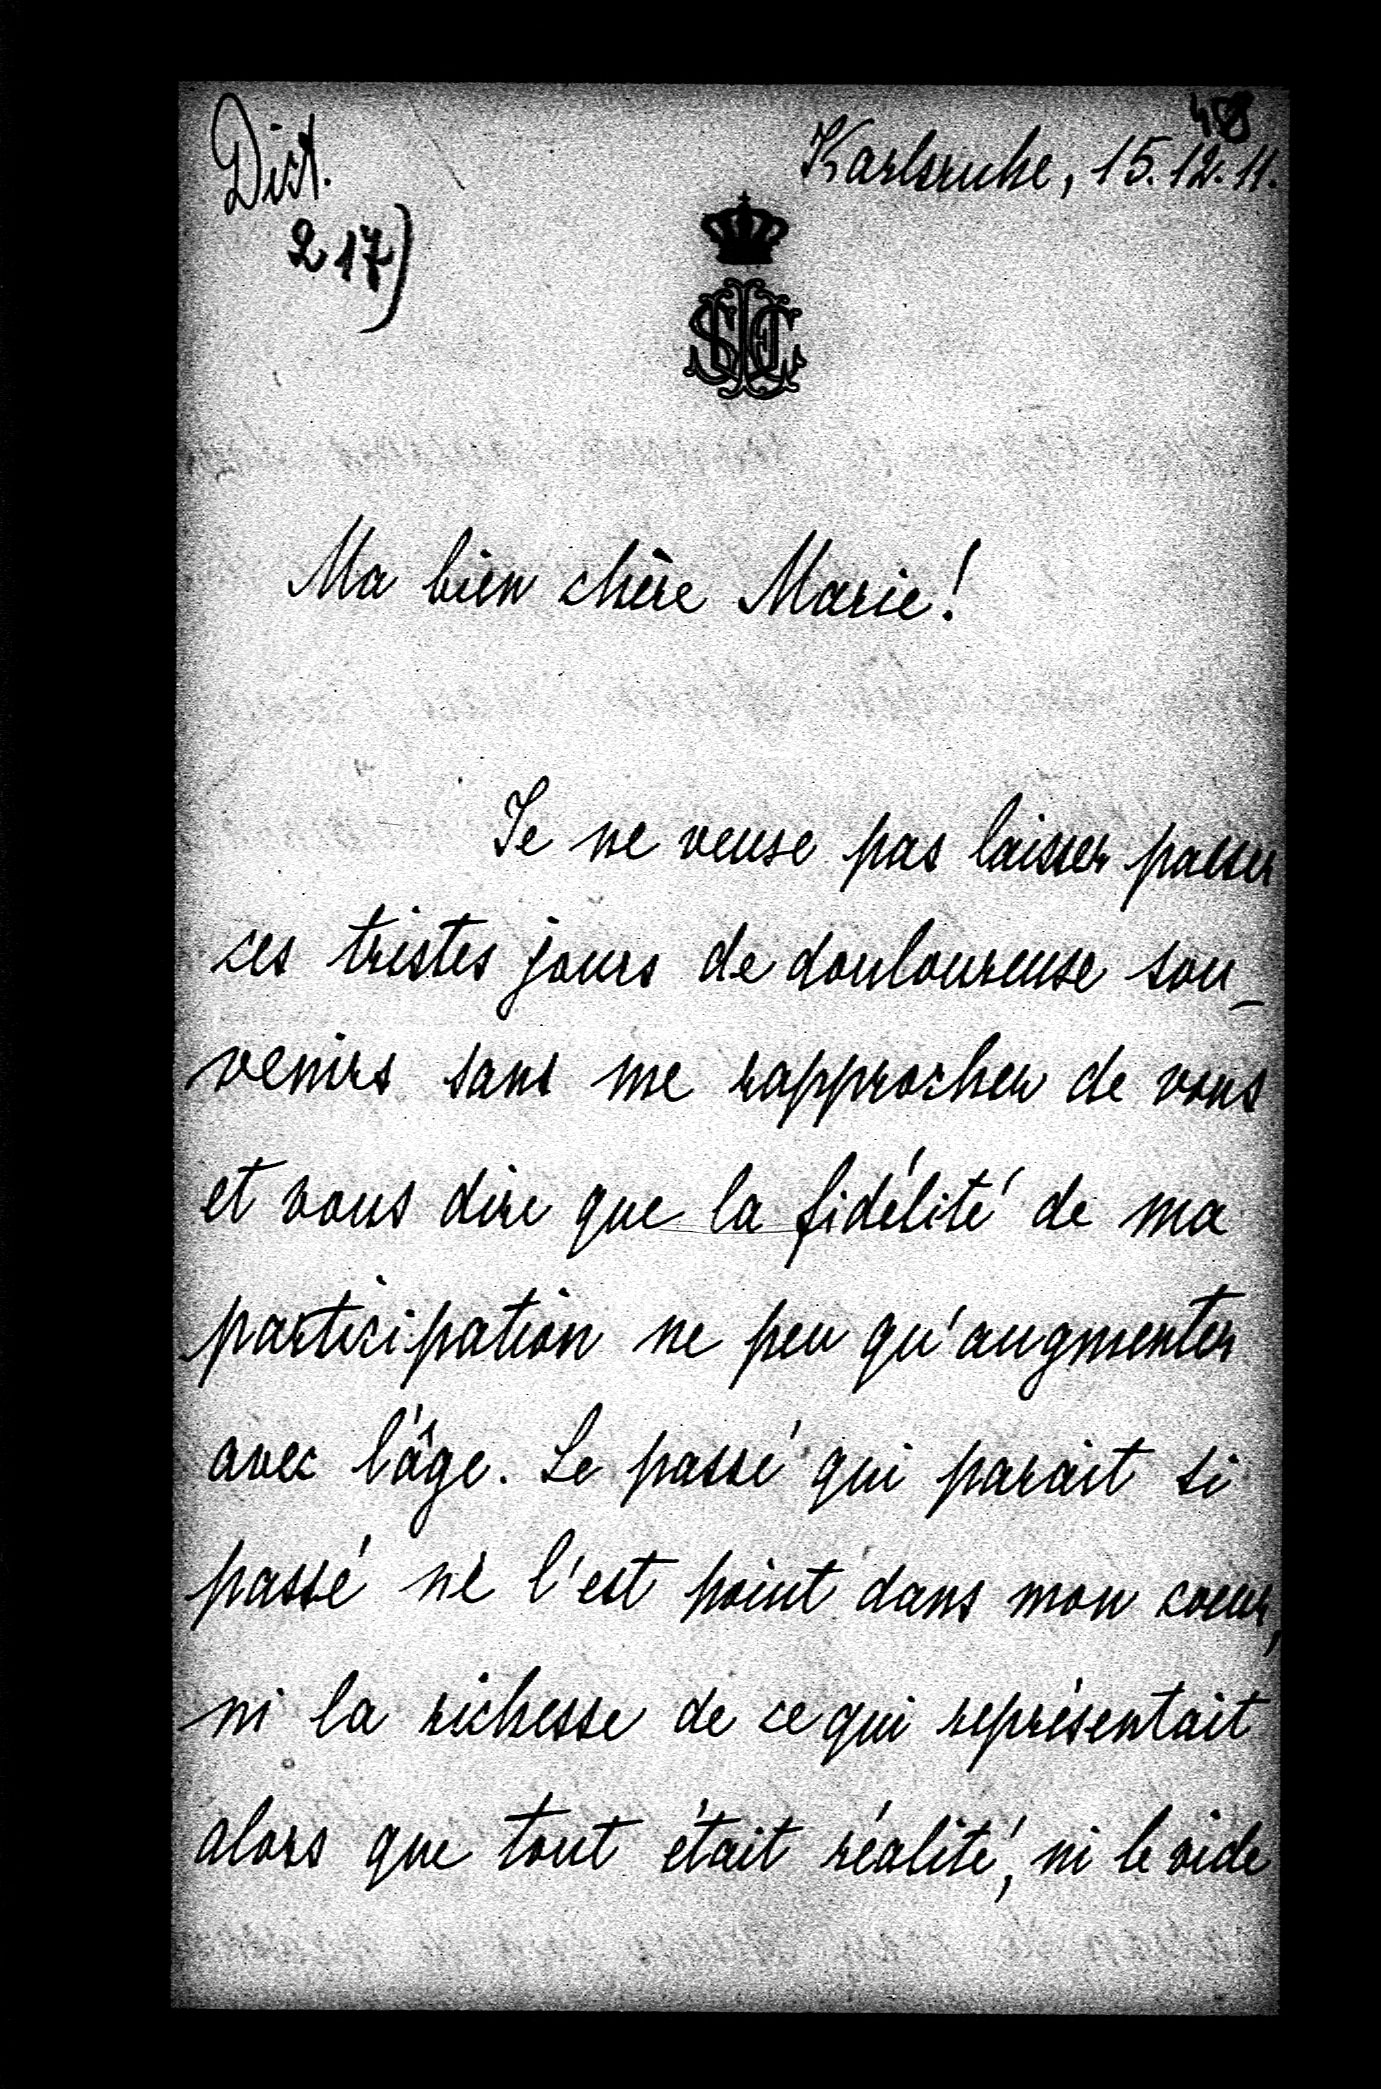 Dict.
217)
458
Karlsruhe, 15.12.11.
Ma bien chère Marie!
Je ne veuse pas laisser passer
ces tristes jours de douloureuse sou-
venirs sans me rapprocher de vous
et vous dire que la fidélité de ma
participation ne peu qu'augmenter
avec l'âge. Le passé qui parait si
passé ne l'est point dans mon coeur,
ni la richesse de ce qui représentait
alors que tout était réalité, ni le vide